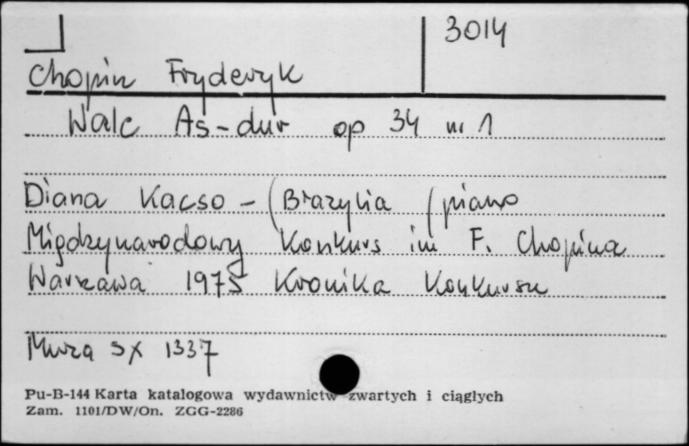 3014
Chopin Fryderyk
Walc As-dur op 34 nr 1
Diana Kacso - (Brazylia (piano
Międzynarodowy Konkurs im F. Chopina
Warszawa 1975 Kronika Konkursu
Muza SX 1337
Pu-B-144 Karta katalogowa wydawnictw zwartych i ciągłych
Zam. 1101/DW/On. ZGG-2286